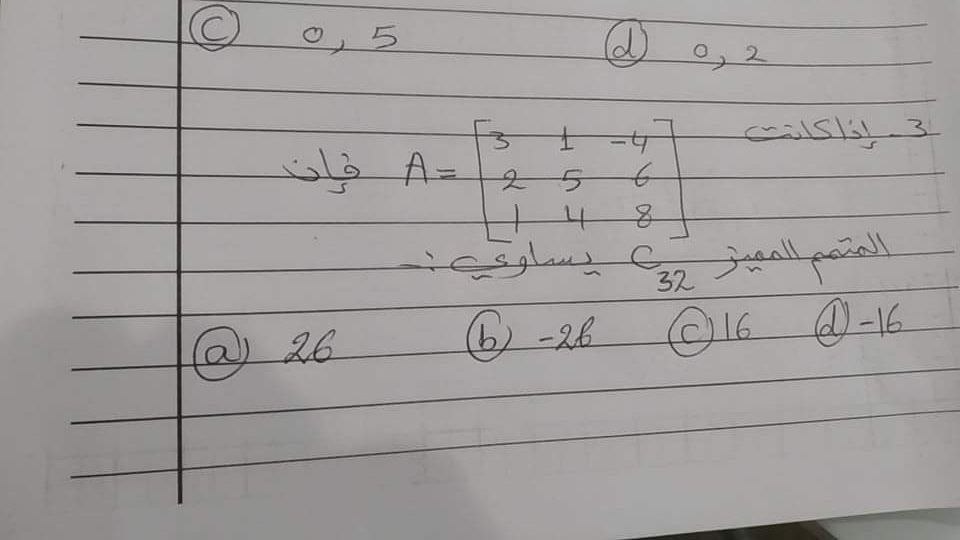 ⓒ 0, 5 ⓓ 0, 2
3- إذا كانت A = [3 1 -4 فإن
2 5 6
1 4 8]
المتمم المميز C32 يساوي :-
ⓐ 26 ⓑ -26 ⓒ 16 ⓓ -16